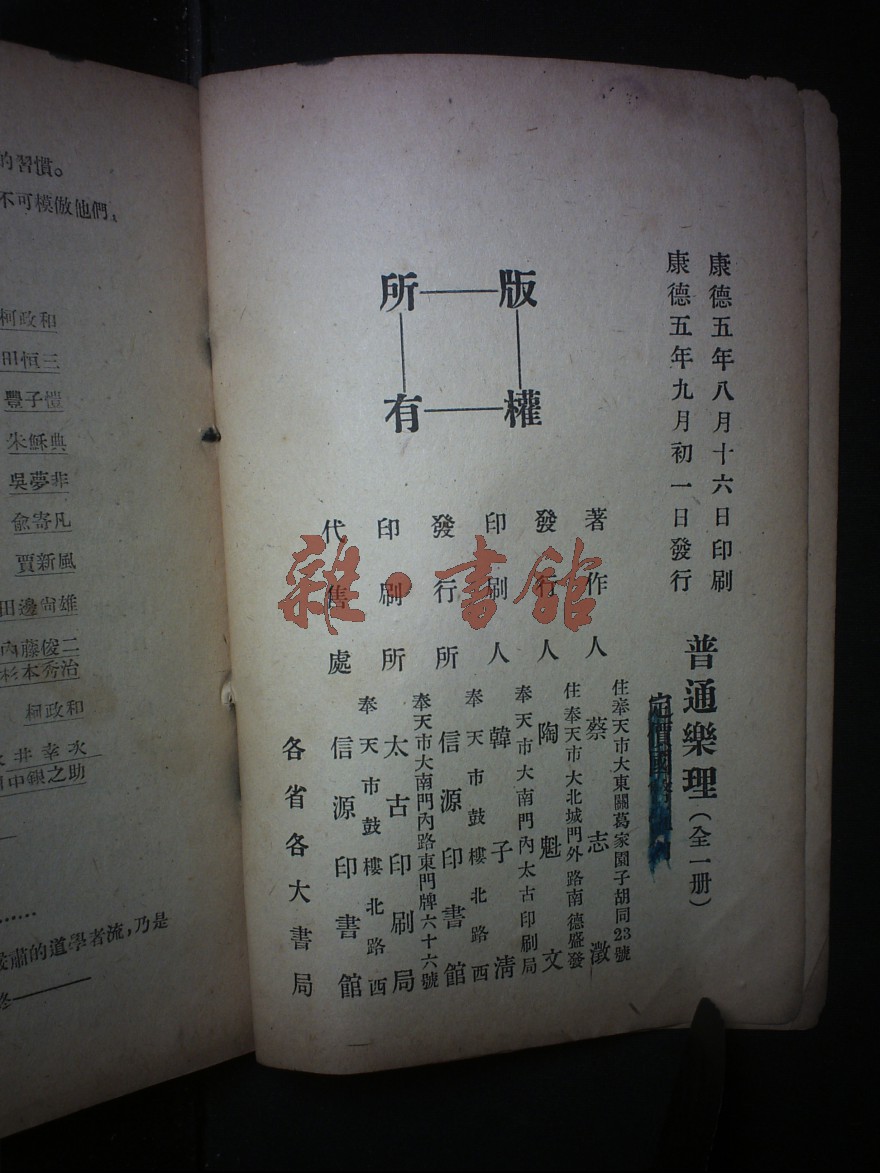 康德五年八月十六日印刷
康德五年九月初一日發行
普通樂理(全一册)
定價國幣
版權所有
著作人
住奉天市大東關葛家園子胡同23號
蔡志澂
發行人
住奉天市大北城門外路南德盛發
陶魁文
印刷人
奉天市大南門內太古印刷局
韓子清
發行所
奉天市鼓樓北路西
信源印書館
印刷所
奉天市大南門內路東門牌六十六號
太古印刷局
代售處
奉天市鼓樓北路西
信源印書館
各省各大書局
雜·書館
的習慣。
不可模倣他們、
柯政和
田恒三
豐子愷
朱穌典
吳夢非
俞寄凡
賈新風
田邊尙雄
內藤俊二
杉本秀治
柯政和
井幸次
田中銀之助
肅的道學者流,乃是